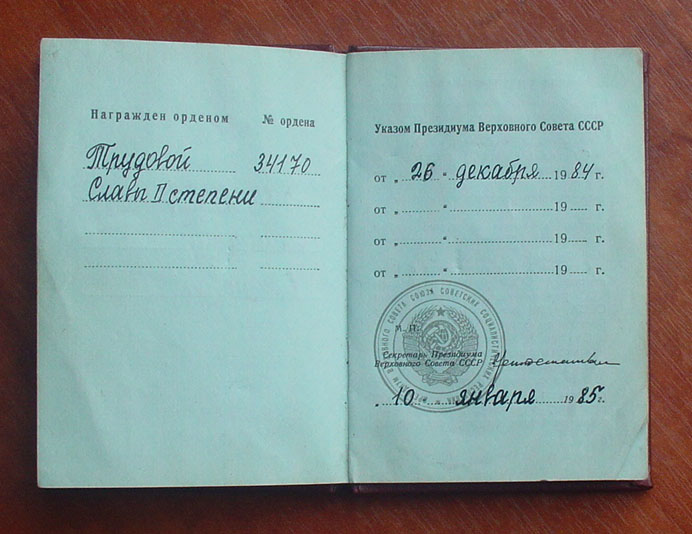 Награжден орденом № ордена
Трудовой 34170
Славы II степени
Указом Президиума Верховного Совета СССР
от „ 26 “ декабря 1984 г.
от „ “ 19 г.
от „ “ 19 г.
от „ “ 19 г.
М. П.
Секретарь Президиума
Верховного Совета СССР
10 января 1985 г.